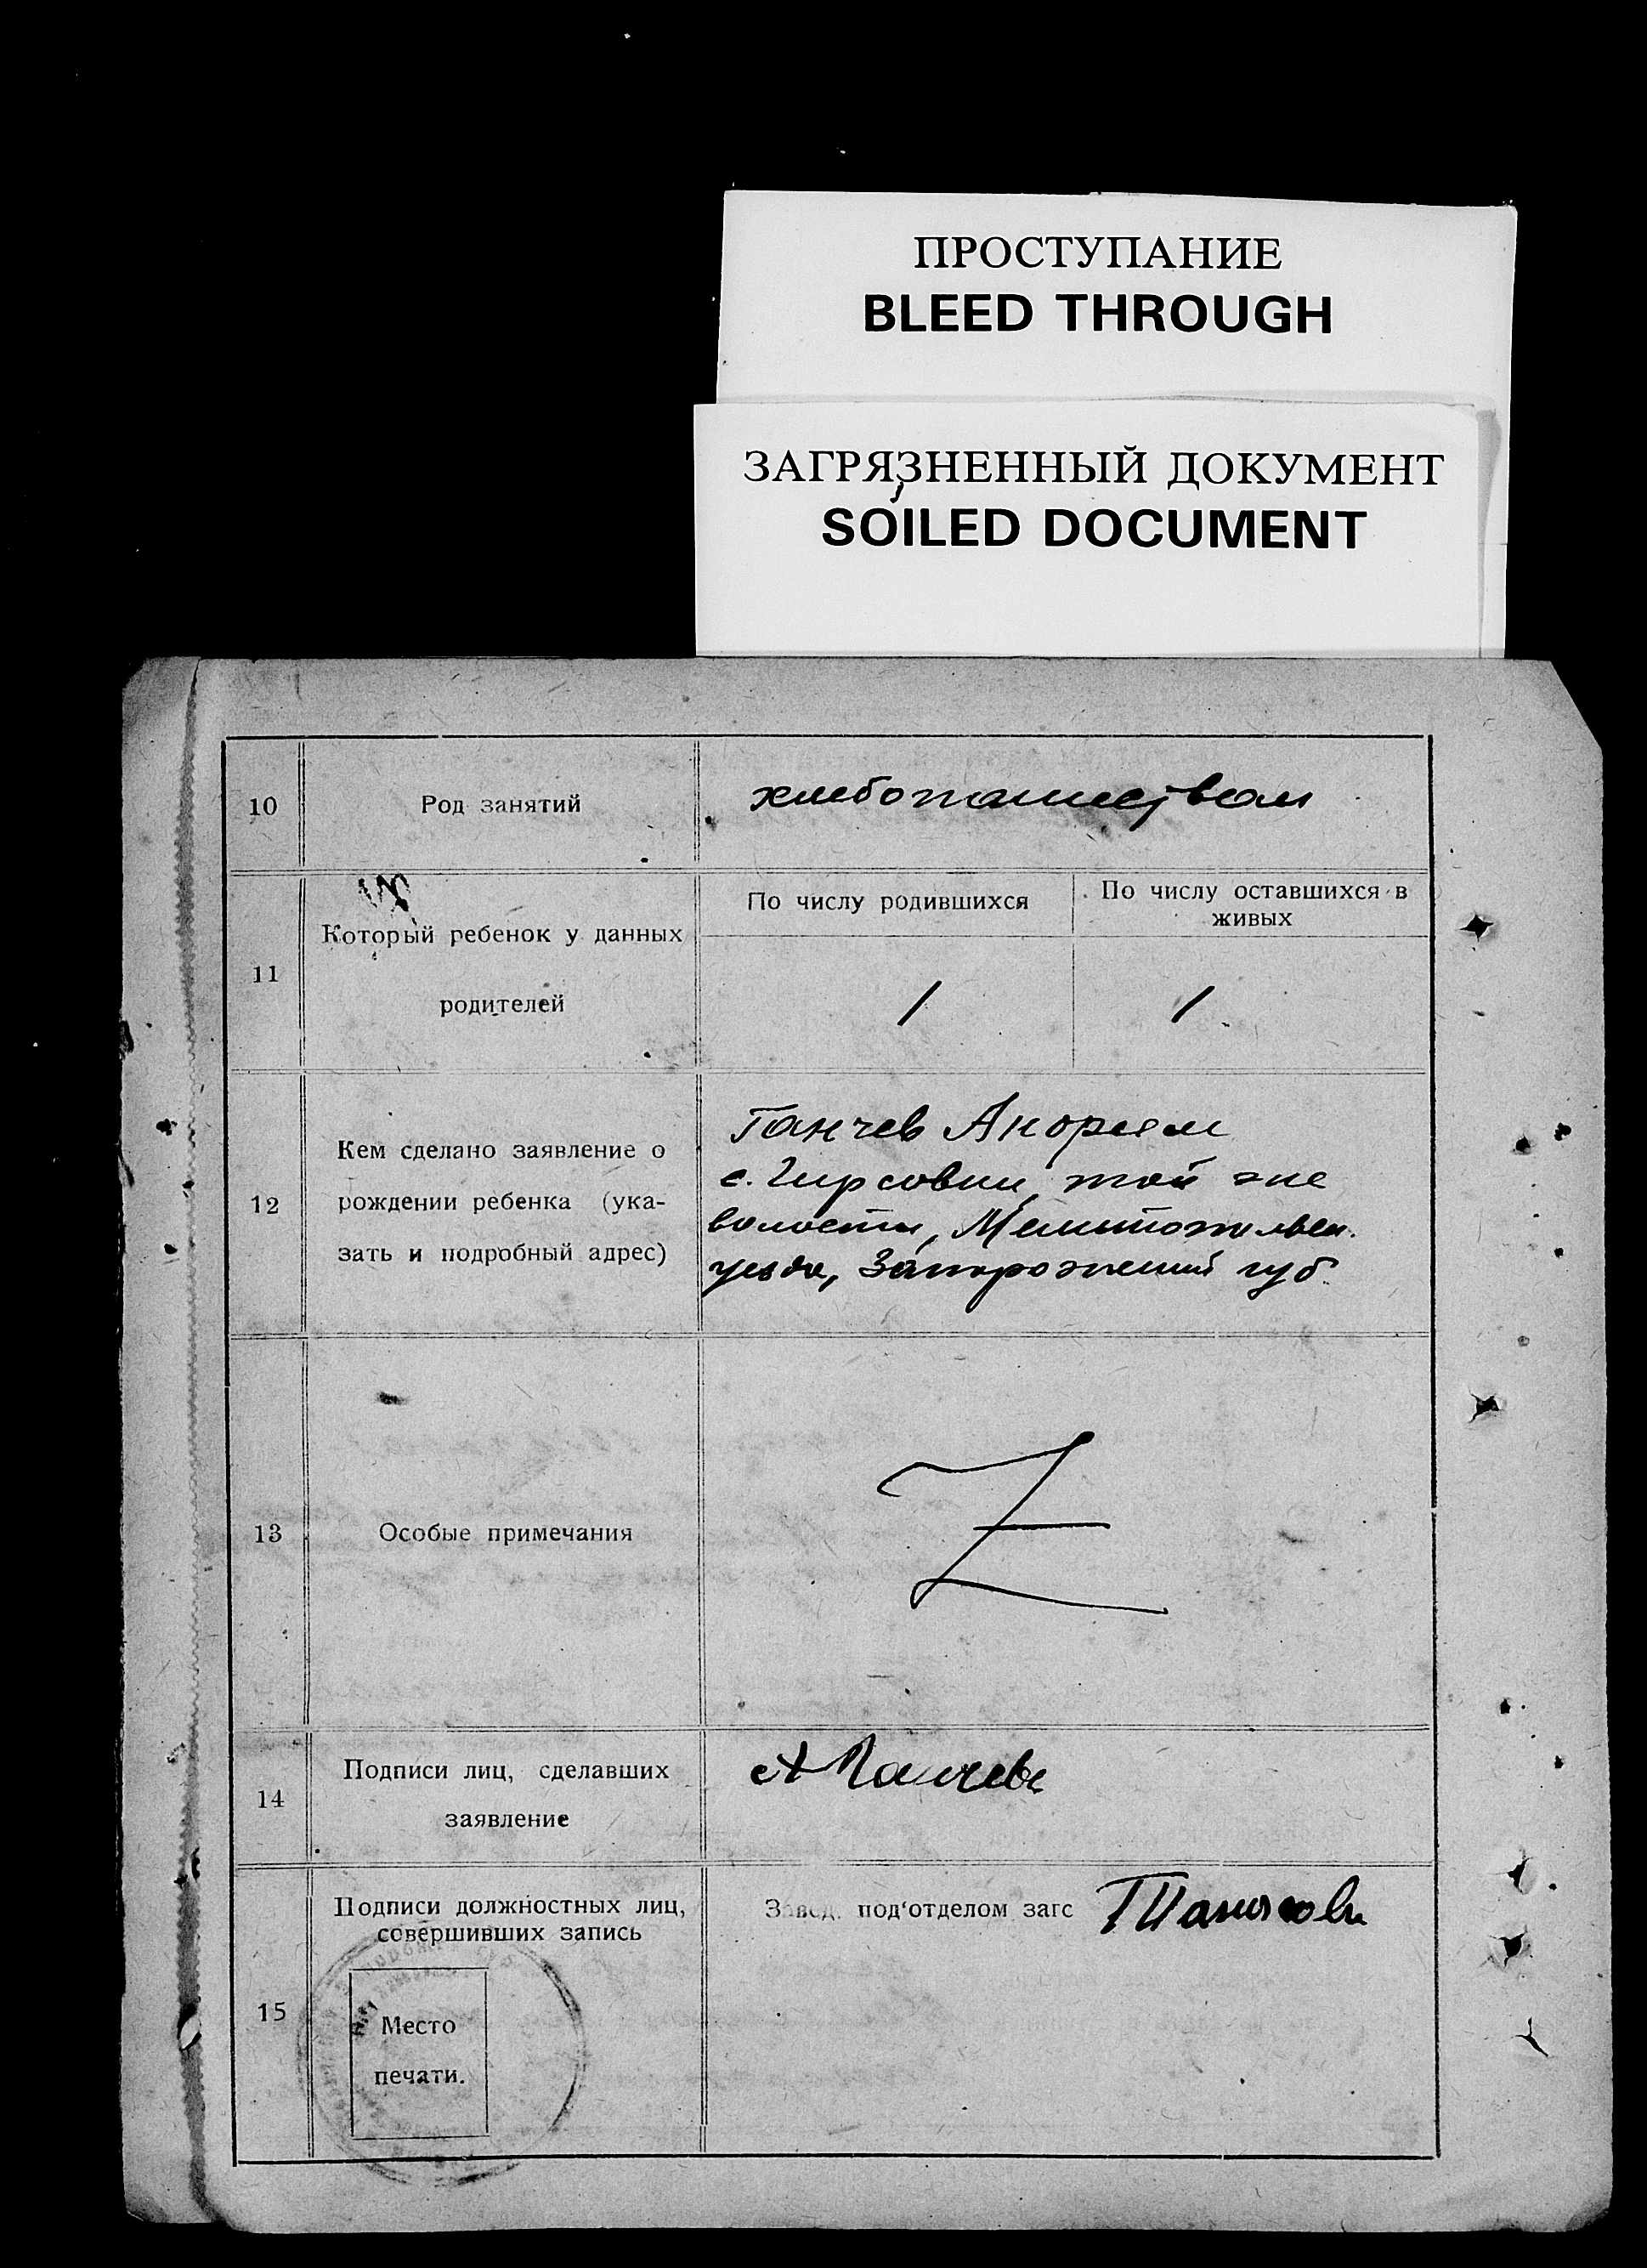 ПРОСТУПАНИЕ
BLEED THROUGH
ЗАГРЯЗНЕННЫЙ ДОКУМЕНТ
SOILED DOCUMENT
10
Род занятий
хлебопашеством
11
Который ребенок у данных
родителей
По числу родившихся
По числу оставшихся в
живых
1
1
12
Кем сделано заявление о
рождении ребенка (ука-
зать и подробный адрес)
Ганчев Андреем
с. Гирсовки, той же
волости, Мелитопольск.
уезда, Запорожской губ.
13
Особые примечания
Z
14
Подписи лиц, сделавших
заявление
А Ганчевъ
15
Подписи должностных лиц,
совершивших запись
Место
печати.
Завед. под‘отделом загс